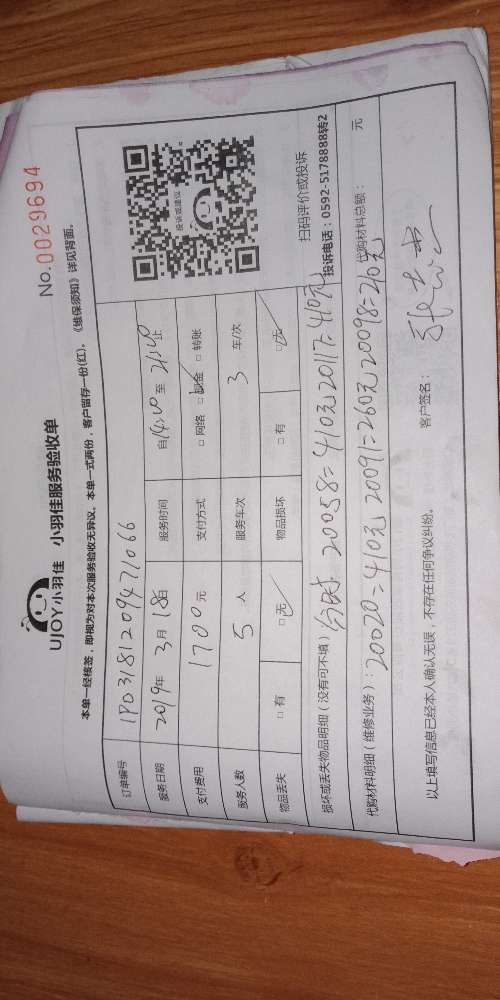 UJOY小羽佳 小羽佳服务验收单
No.0029694
本单一经核签，即视为对本次服务验收无异议。本单一式两份，客户留存一份(红)。《维保须知》详见背面。
订单编号 1P03181209471066
服务日期 2019年 3月 18日 服务时间 自14:00 至 21:00止
支付费用 1700元 支付方式 □ 网络 □ 现金 □ 转账
服务人数 5 人 服务车次 3 车/次
物品丢失 □ 有 □ 无 物品损坏 □ 有 □ 无
投诉或建议
扫码评价或投诉
投诉电话：0592-5178888转2
损坏或丢失物品明细（没有可不填） 20058=410元 20117=410元
代购材料明细（维修业务）：20020=410元 20091=260元 20098=210元 代购材料总额： 元
以上填写信息已经本人确认无误，不存在任何争议纠纷。 客户签名：